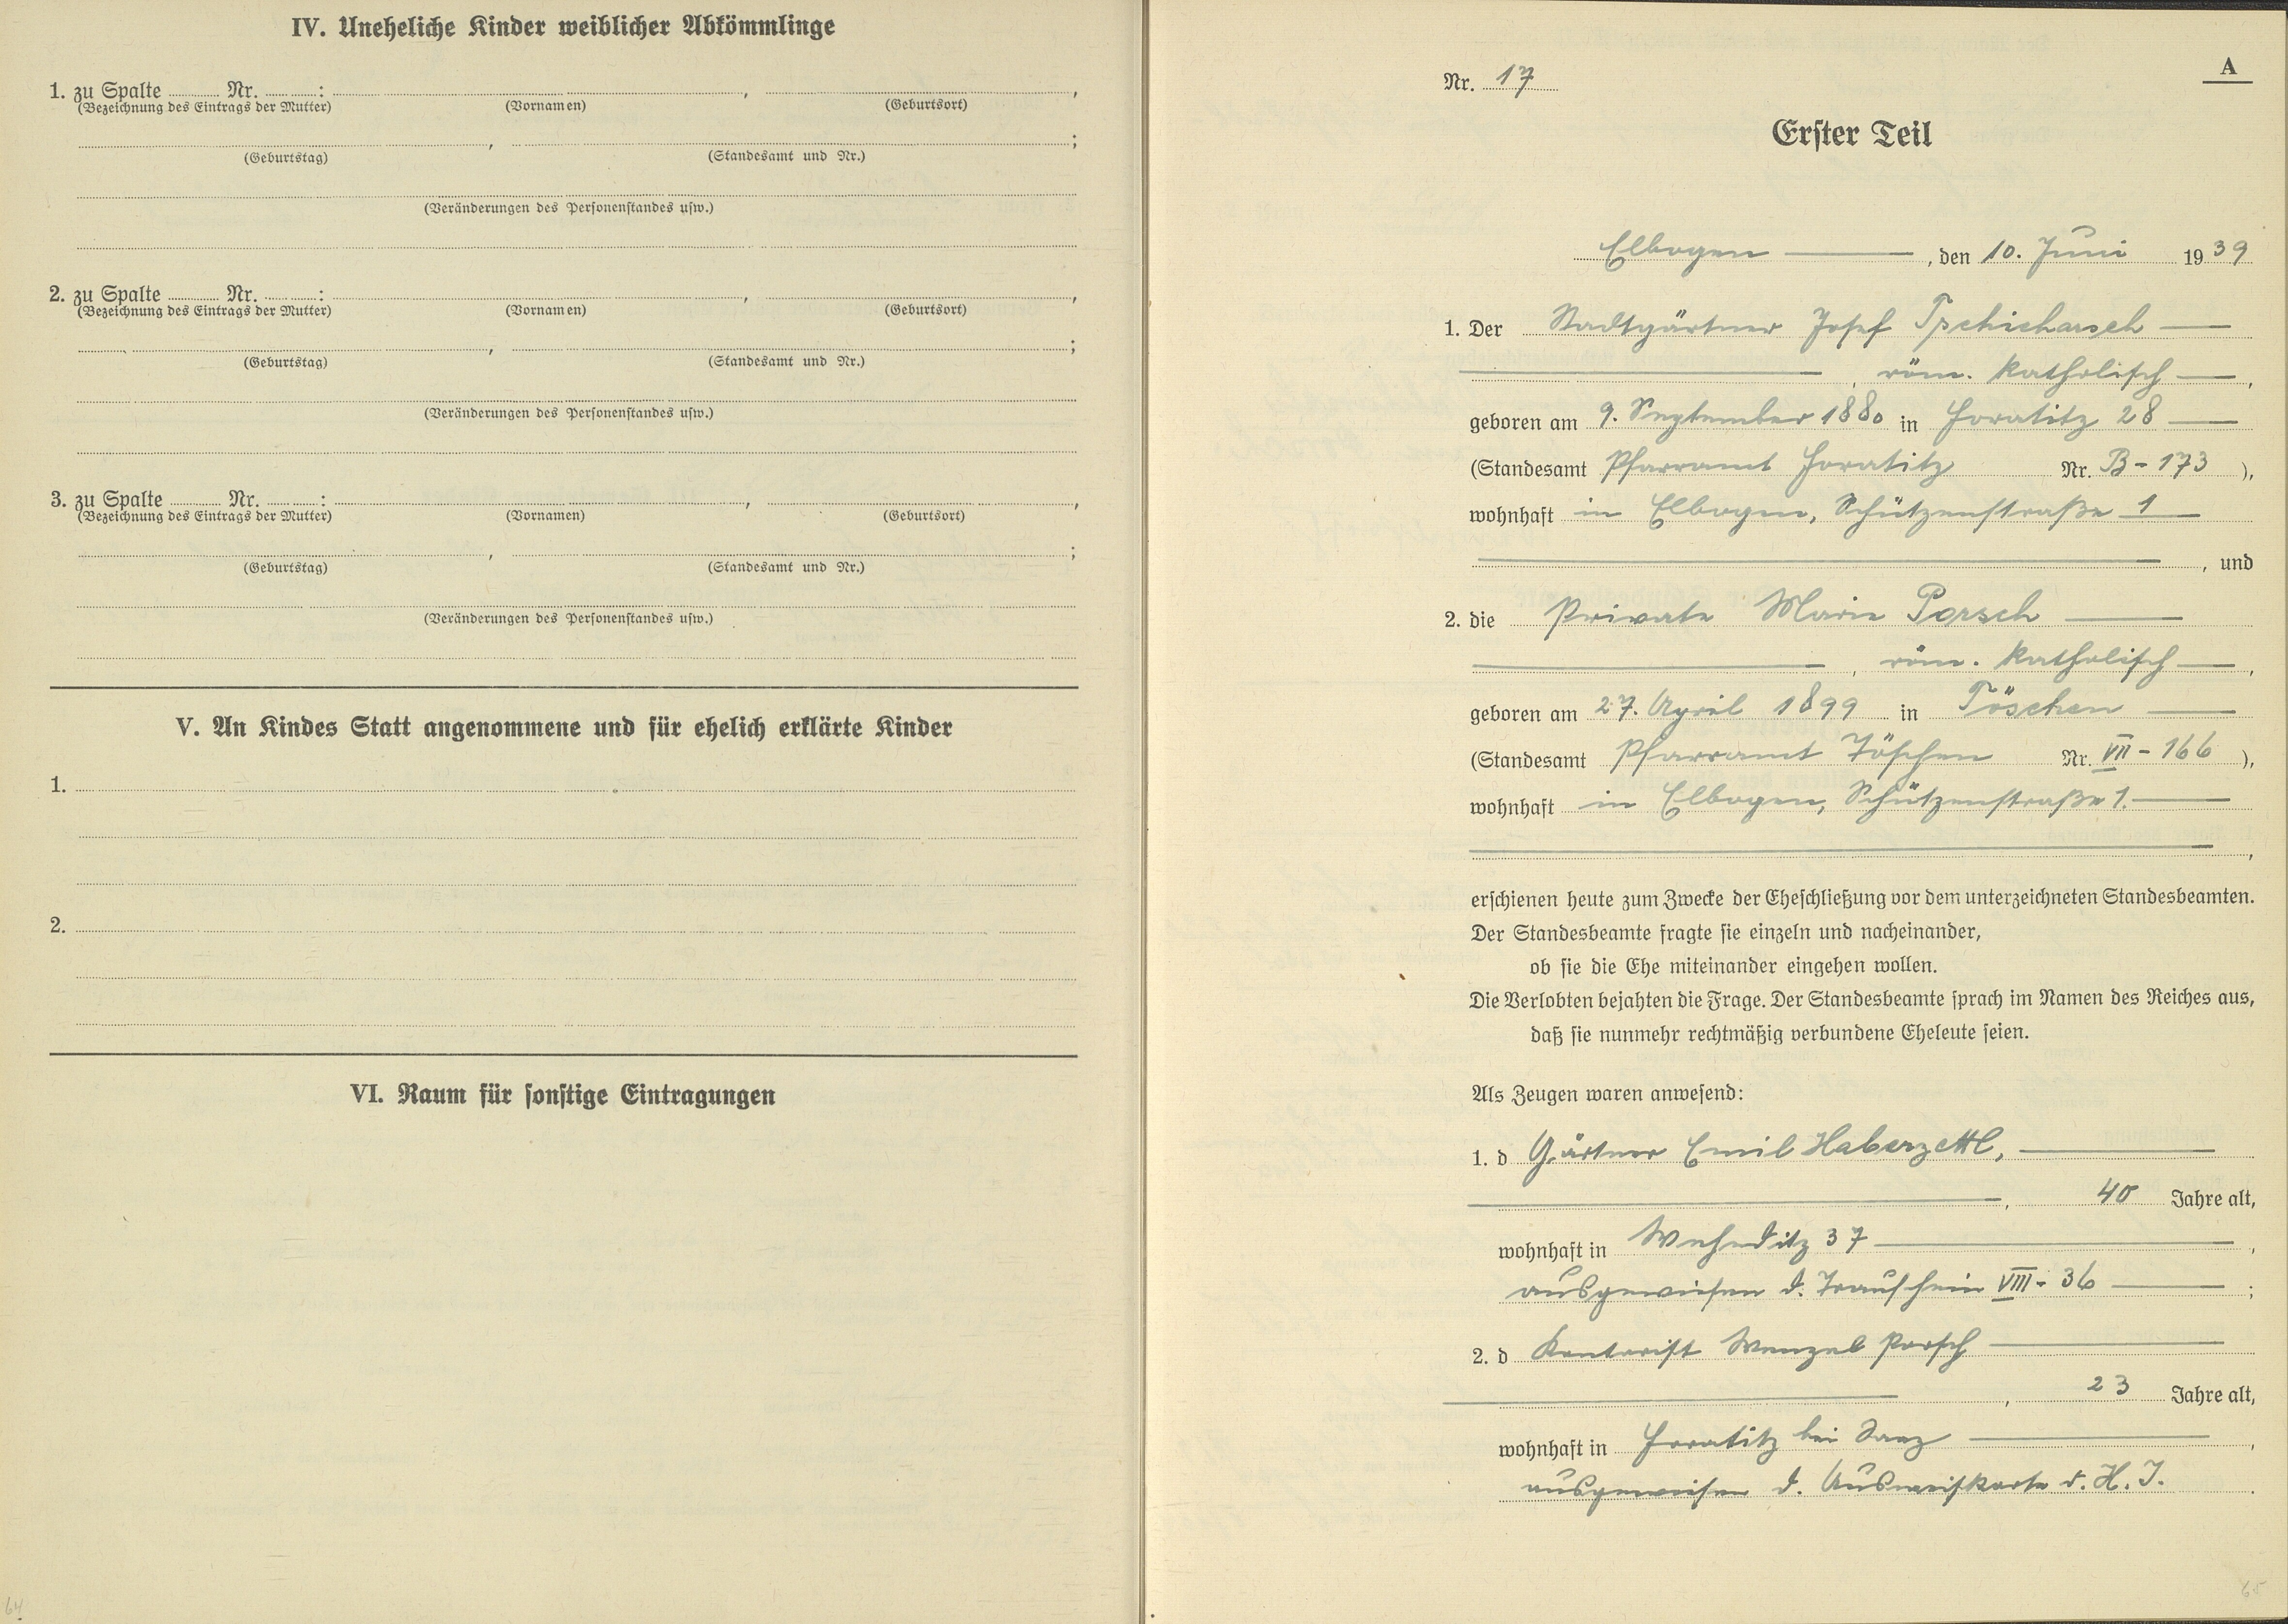 IV. Uneheliche Kinder weiblicher Abkömmlinge
1. zu Spalte ........ Nr. ........: ........, ........,
(Bezeichnung des Eintrags der Mutter) (Vornamen) (Geburtsort)
........, ........;
(Geburtstag) (Standesamt und Nr.)
(Veränderungen des Personenstandes usw.)
2. zu Spalte ........ Nr. ........: ........, ........,
(Bezeichnung des Eintrags der Mutter) (Vornamen) (Geburtsort)
........, ........;
(Geburtstag) (Standesamt und Nr.)
(Veränderungen des Personenstandes usw.)
3. zu Spalte ........ Nr. ........: ........, ........,
(Bezeichnung des Eintrags der Mutter) (Vornamen) (Geburtsort)
........, ........;
(Geburtstag) (Standesamt und Nr.)
(Veränderungen des Personenstandes usw.)
V. An Kindes Statt angenommene und für ehelich erklärte Kinder
1.
2.
VI. Raum für sonstige Eintragungen
64
A
Nr. 17
Erster Teil
Elbogen, den 10. Juni 1939
1. Der Stadtgärtner Josef Tschicharsch
, röm. katholisch,
geboren am 9. September 1880 in Horatitz 28
(Standesamt Pfarramt Horatitz Nr. B - 173),
wohnhaft in Elbogen, Schützenstraße 1
, und
2. die Private Marie Porsch
, röm. katholisch,
geboren am 27. April 1899 in Töschen
(Standesamt Pfarramt Töschen Nr. VII - 166),
wohnhaft in Elbogen, Schützenstraße 1.
,
erschienen heute zum Zwecke der Eheschließung vor dem unterzeichneten Standesbeamten.
Der Standesbeamte fragte sie einzeln und nacheinander,
ob sie die Ehe miteinander eingehen wollen.
Die Verlobten bejahten die Frage. Der Standesbeamte sprach im Namen des Reiches aus,
daß sie nunmehr rechtmäßig verbundene Eheleute seien.
Als Zeugen waren anwesend:
1. d Gärtner Emil Haberzettl,
, 40 Jahre alt,
wohnhaft in Weheditz 37,
ausgewiesen d. Trauschein VIII - 36;
2. d Kontorist Wenzel Porsch
, 23 Jahre alt,
wohnhaft in Horatitz bei Saaz,
ausgewiesen d. Ausweiskarte d. H. J.
65